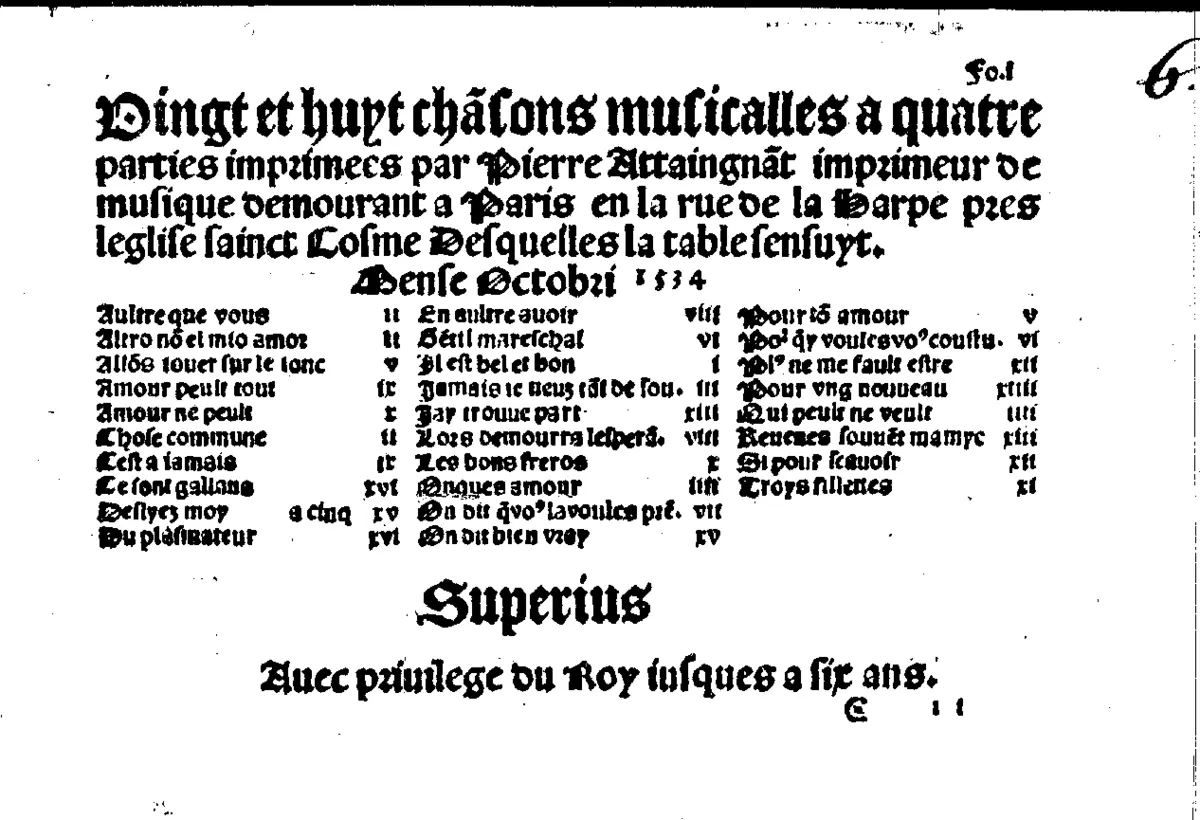 Fo.i
6.
Vingt et huyt chãsons musicalles a quatre
parties imprimees par Pierre Attaingnãt imprimeur de
musique demourant a Paris en la rue de la Harpe pres
leglise sainct Cosme Desquelles la table sensuyt.
Mense Octobri 1534
Aultre que vous ii
Altro nõ el mio amor ii
Allõs iouer sur le ionc v
Amour peult tout ix
Amour ne peult x
Chose commune ii
Cest a iamais ix
Ce sont gallans xvi
Destyez moy a cinq xv
Du xvi
En aultre auoir viii
Gẽtil mareschal vi
Il est bel et bon i
Jamais ie neuz tãt de sou. iii
Jay trouue part xiii
Lors demourra lesperã. viii
Les bons freros x
Onques amour iiii
On dit q̃ voꝰ la voules prẽ. vii
On dit bien vray xv
Pour tõ amour v
vi
Plꝰ ne me fault estre xii
Pour vng nouueau xiiii
Qui peult ne veult iiii
Reuenes souuẽt mamye xiii
Si pour scauoir xii
Troys fillettes xi
Superius
Auec priuilege du Roy iusques a six ans.
E ii